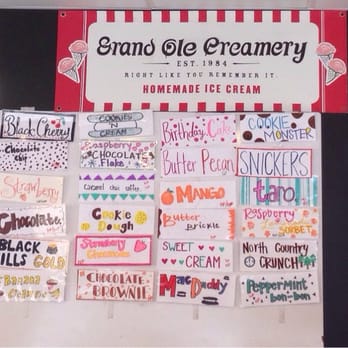 Grand Ole Creamery
EST. 1984
RIGHT LIKE YOU REMEMBER IT.
HOMEMADE ICE CREAM
Black Cherry
COOKIES
'N
CREAM
Birthday Cake
COOKIE
MONSTER
Chocolate
chip
Raspberry
CHOCOLATE
Flake
Butter Pecan
SNICKERS
Strawberry
MANGO
taro
Chocolate
Cookie
Dough
Butter
brickle
Raspberry
SORBET
BLACK
HILLS GOLD
Strawberry
Cheesecake
SWEET
CREAM
North Country
CRUNCH
Banana
CHOCOLATE
BROWNIE
Mac
Daddy
PepperMint
bon-bon